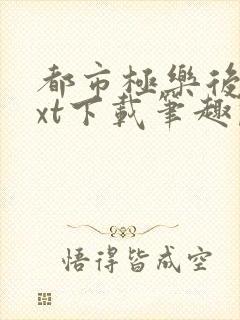 都市極樂後
xt下載筆趣
悟得皆成空